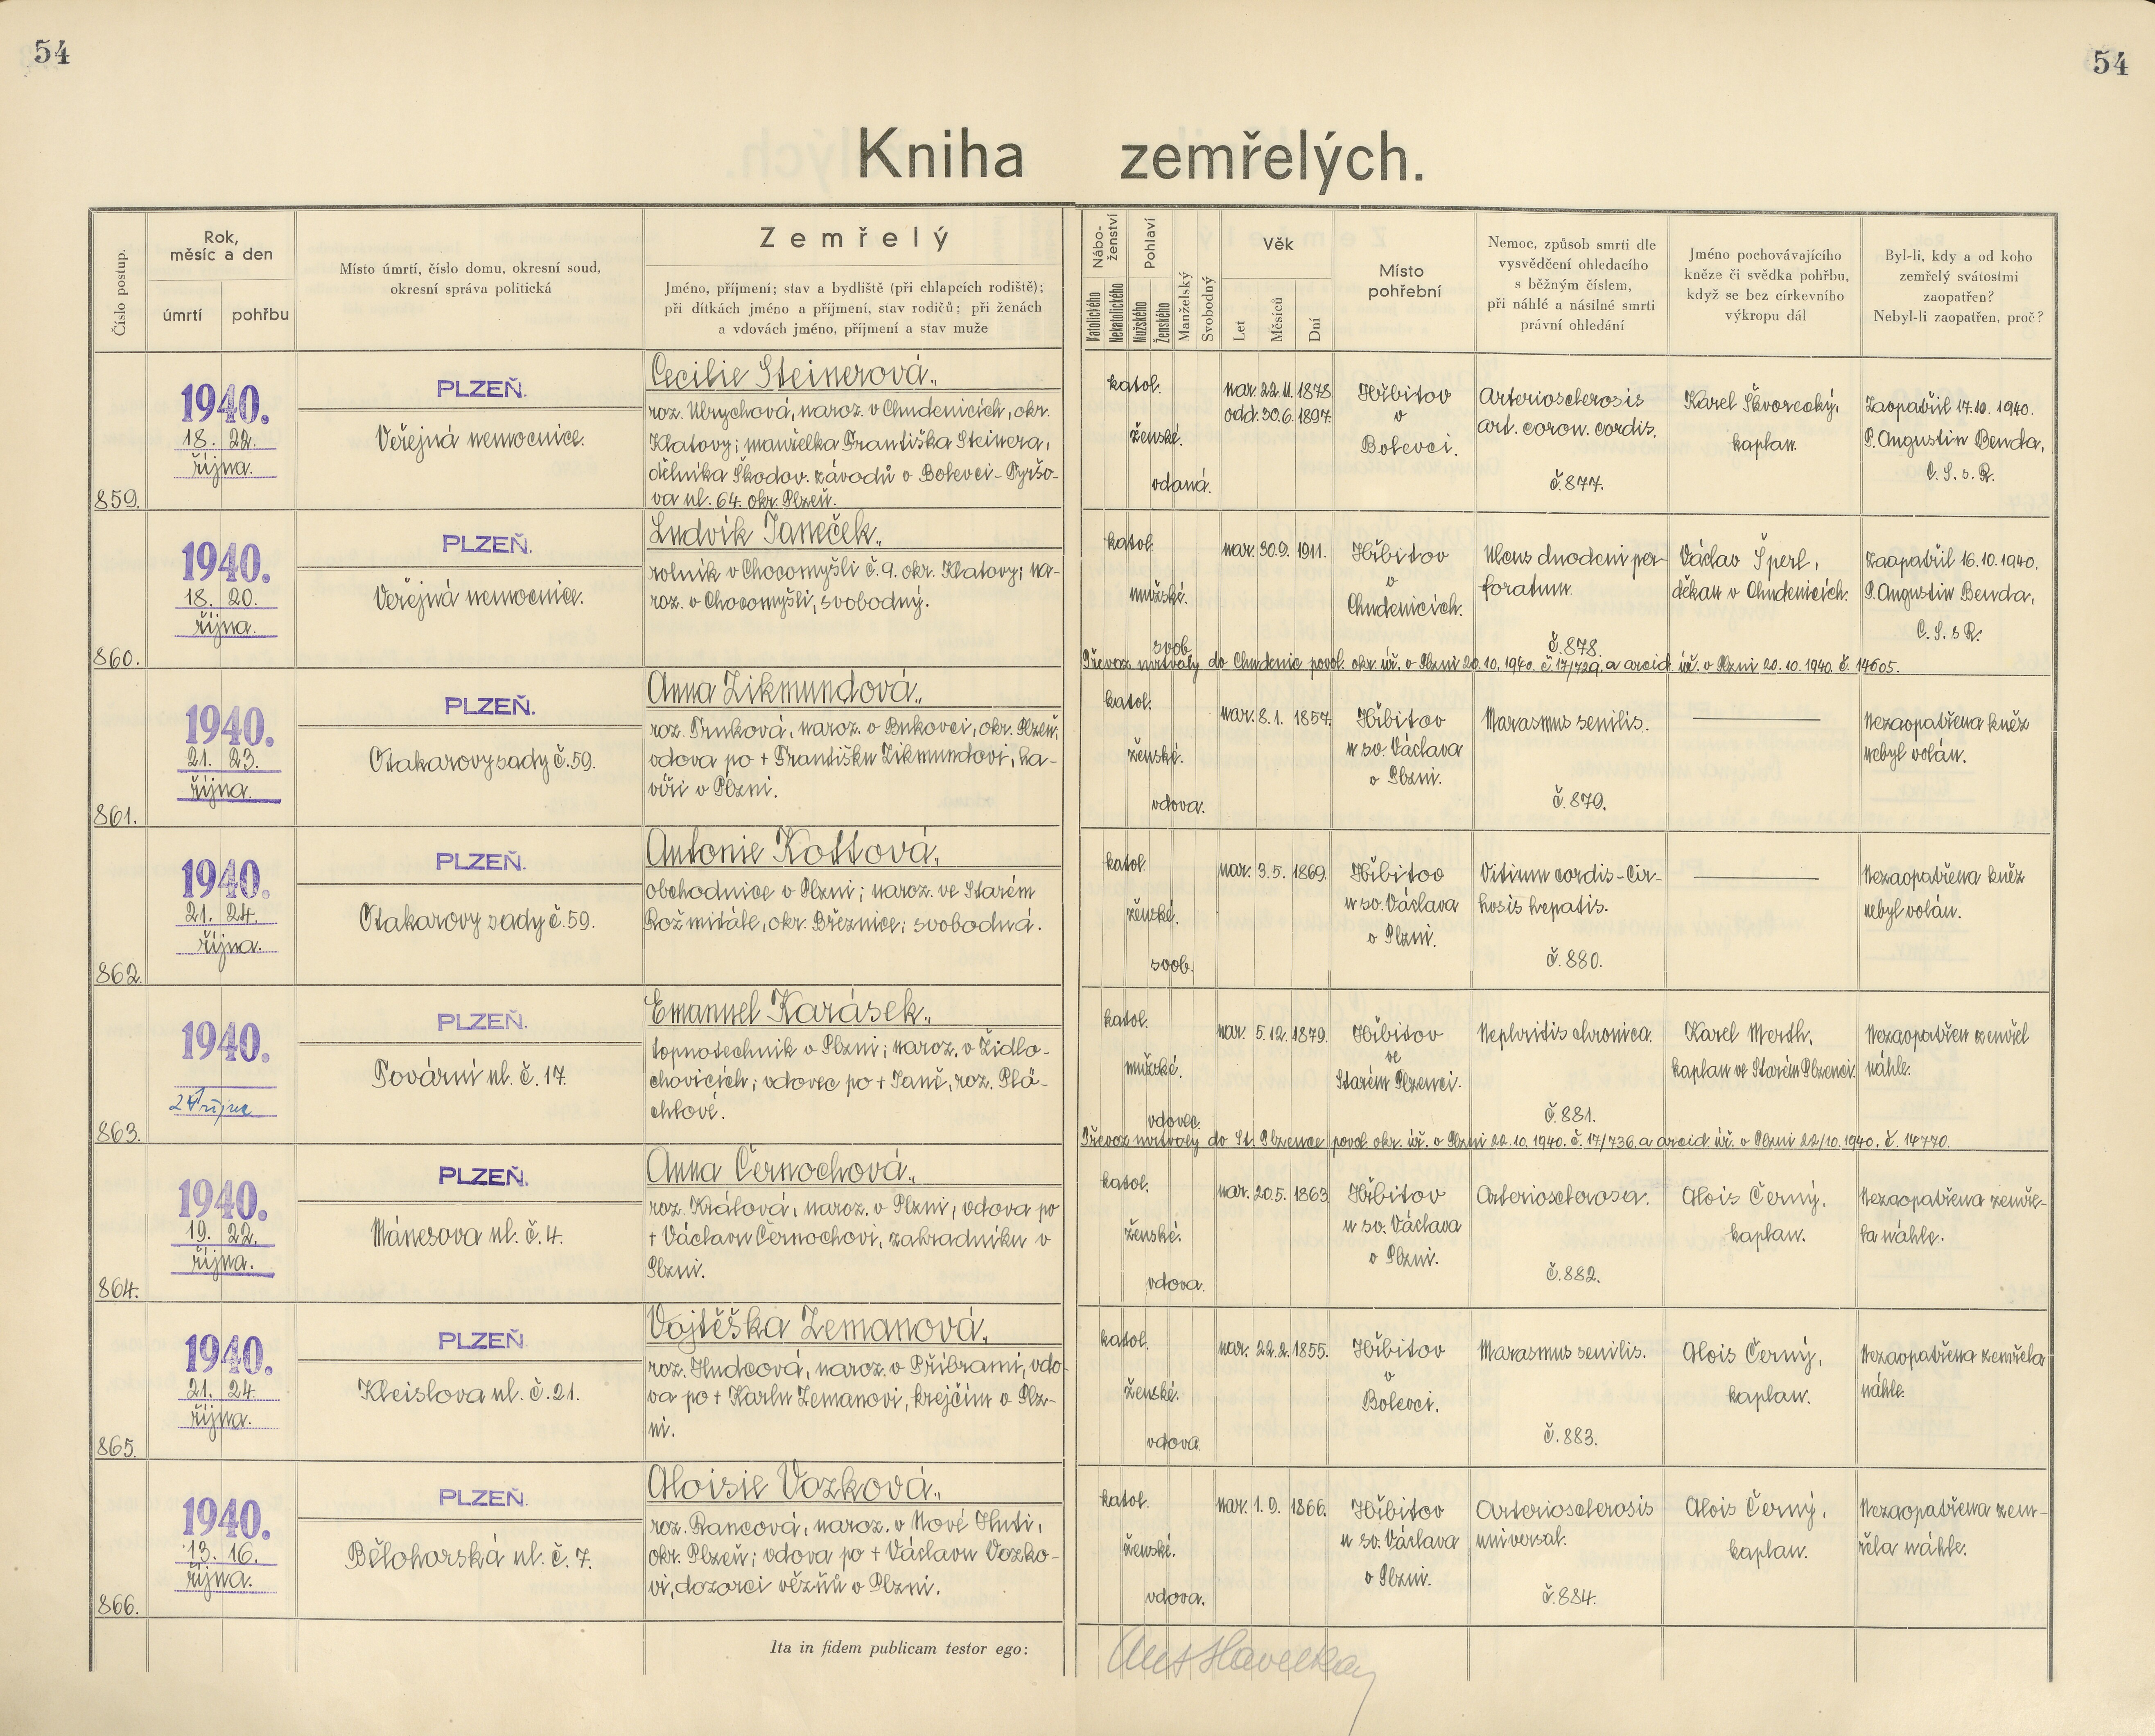 54
54
Kniha zemřelých.
Číslo postup.
Rok,
měsíc a den
úmrtí
pohřbu
Místo úmrtí, číslo domu, okresní soud,
okresní správa politická
Zemřelý
Jméno, příjmení; stav a bydliště (při chlapcích rodiště);
při dítkách jméno a příjmení, stav rodičů; při ženách
a vdovách jméno, příjmení a stav muže
Nábo-
ženství
Katolického
Nekatolického
Pohlaví
Mužského
Ženského
Manželský
Svobodný
Věk
Let
Měsíců
Dní
Místo
pohřební
Nemoc, způsob smrti dle
vysvědčení ohledacího
s běžným číslem,
při náhlé a násilné smrti
právní ohledání
Jméno pochovávajícího
kněze či svědka pohřbu,
když se bez církevního
výkropu dál
Byl-li, kdy a od koho
zemřelý svátostmi
zaopatřen?
Nebyl-li zaopatřen, proč?
859.
1940.
18. 22.
října.
PLZEŇ.
Veřejná nemocnice.
Cecilie Steinerová.,
roz. Ulrychová, naroz. v Chudenicích, okr.
Klatovy; manželka Františka Steinera,
dělníka Škodov. závodů v Bolevci - Tyršo-
va ul. 64. okr. Plzeň.
katol.
ženské.
vdaná.
nar. 22. 11. 1878.
odd. 30. 6. 1897.
Hřbitov
v
Bolevci.
Arteriosclerosis
art. coron. cordis.
č. 877.
Karel Škvorecký,
kaplan.
Zaopatřil 17. 10. 1940.
P. Augustin Benda,
C. S. s. R.
860.
1940.
18. 20.
října.
PLZEŇ.
Veřejná nemocnice.
Ludvík Janeček.,
rolník v Chocomyšli č. 9. okr. Klatovy; na-
roz. v Chocomyšli, svobodný.
katol.
mužské.
svob.
nar. 30. 9. 1911.
Hřbitov
v
Chudenicích.
Ulcus duodeni per-
foratum.
č. 878.
Václav Šperl,
děkan v Chudenicích.
Zaopatřil 16. 10. 1940.
P. Augustin Benda,
C. S. s R.
Převoz mrtvoly do Chudenic povol. okr. úř. v Plzni 20. 10. 1940. č. 17/729. a arcid. úř. v Plzni 20. 10. 1940. č. 14605.
861.
1940.
21. 23.
října.
PLZEŇ.
Otakarovy sady č. 59.
Anna Zikmundová.,
roz. Trnková, naroz. v Bukovci, okr. Plzeň,
vdova po + Františku Zikmundovi, ha-
víři v Plzni.
katol.
ženské.
vdova.
nar. 8. 1. 1857.
Hřbitov
u sv. Václava
v Plzni.
Marasmus senilis.
č. 879.
Nezaopatřena kněz
nebyl volán.
862.
1940.
21. 24.
října.
PLZEŇ.
Otakarovy sady č. 59.
Antonie Kottová.
obchodnice v Plzni; naroz. ve Starém
Rožmitále, okr. Březnice; svobodná.
katol.
ženské.
svob.
nar. 3. 5. 1869.
Hřbitov
u sv. Václava
v Plzni.
Vitium cordis - Cir-
hosis hepatis.
č. 880.
Nezaopatřena kněz
nebyl volán.
863.
1940.
24 října
PLZEŇ.
Tovární ul. č. 17.
Emanuel Karásek.,
topnotechnik v Plzni; naroz. v Židlo-
chovicích; vdovec po + Janě, roz. Plá-
chlové.
katol.
mužské.
vdovec.
nar. 5. 12. 1879.
Hřbitov
ve
Starém Plzenci.
Nephritis chronica.
č. 881.
Karel Werth,
kaplan ve Starém Plzenci.
Nezaopatřen zemřel
náhle.
Převoz mrtvoly do St. Plzence povol. okr. úř. v Plzni 22. 10. 1940. č. 17/736. a arcid. úř. v Plzni 22/10. 1940. č. 14770.
864.
1940.
19. 22.
října.
PLZEŇ.
Mánesova ul. č. 4.
Anna Černochová.,
roz. Králová, naroz. v Plzni, vdova po
+ Václavu Černochovi, zahradníku v
Plzni.
katol.
ženské.
vdova.
nar. 20. 5. 1863.
Hřbitov
u sv. Václava
v Plzni.
Arteriosclerosa.
č. 882.
Alois Černý,
kaplan.
Nezaopatřena zemře-
la náhle.
865.
1940.
21. 24.
října.
PLZEŇ
Kleislova ul. č. 21.
Vojtěška Zemanová.,
roz. Hudcová, naroz. v Příbrami, vdo-
va po + Karlu Zemanovi, krejčím v Plz-
ni.
katol.
ženské.
vdova.
nar. 22. 2. 1855.
Hřbitov
v
Bolevci.
Marasmus senilis.
č. 883.
Alois Černý,
kaplan.
Nezaopatřena zemřela
náhle.
866.
1940.
13. 16.
října.
PLZEŇ.
Bělohorská ul. č. 7.
Aloisie Vozková.,
roz. Rancová, naroz. v Nové Huti,
okr. Plzeň; vdova po + Václavu Vozko-
vi, dozorci vězňů v Plzni.
katol.
ženské.
vdova.
nar. 1. 9. 1866.
Hřbitov
u sv. Václava
v Plzni.
Arteriosclerosis
universal.
č. 884.
Alois Černý,
kaplan.
Nezaopatřena zem-
řela náhle.
Ita in fidem publicam testor ego: